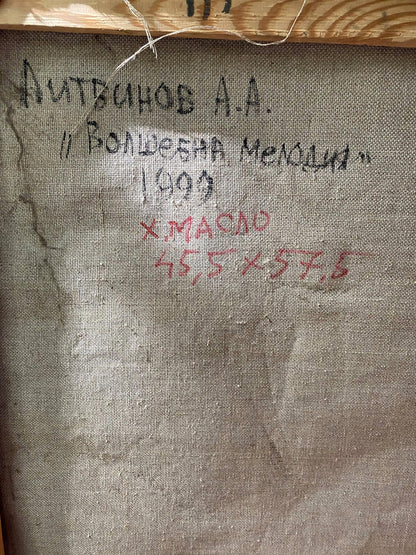 Литвинов А.А.
„Волшебна мелодия"
1999
х.масло
45,5 x 57,5